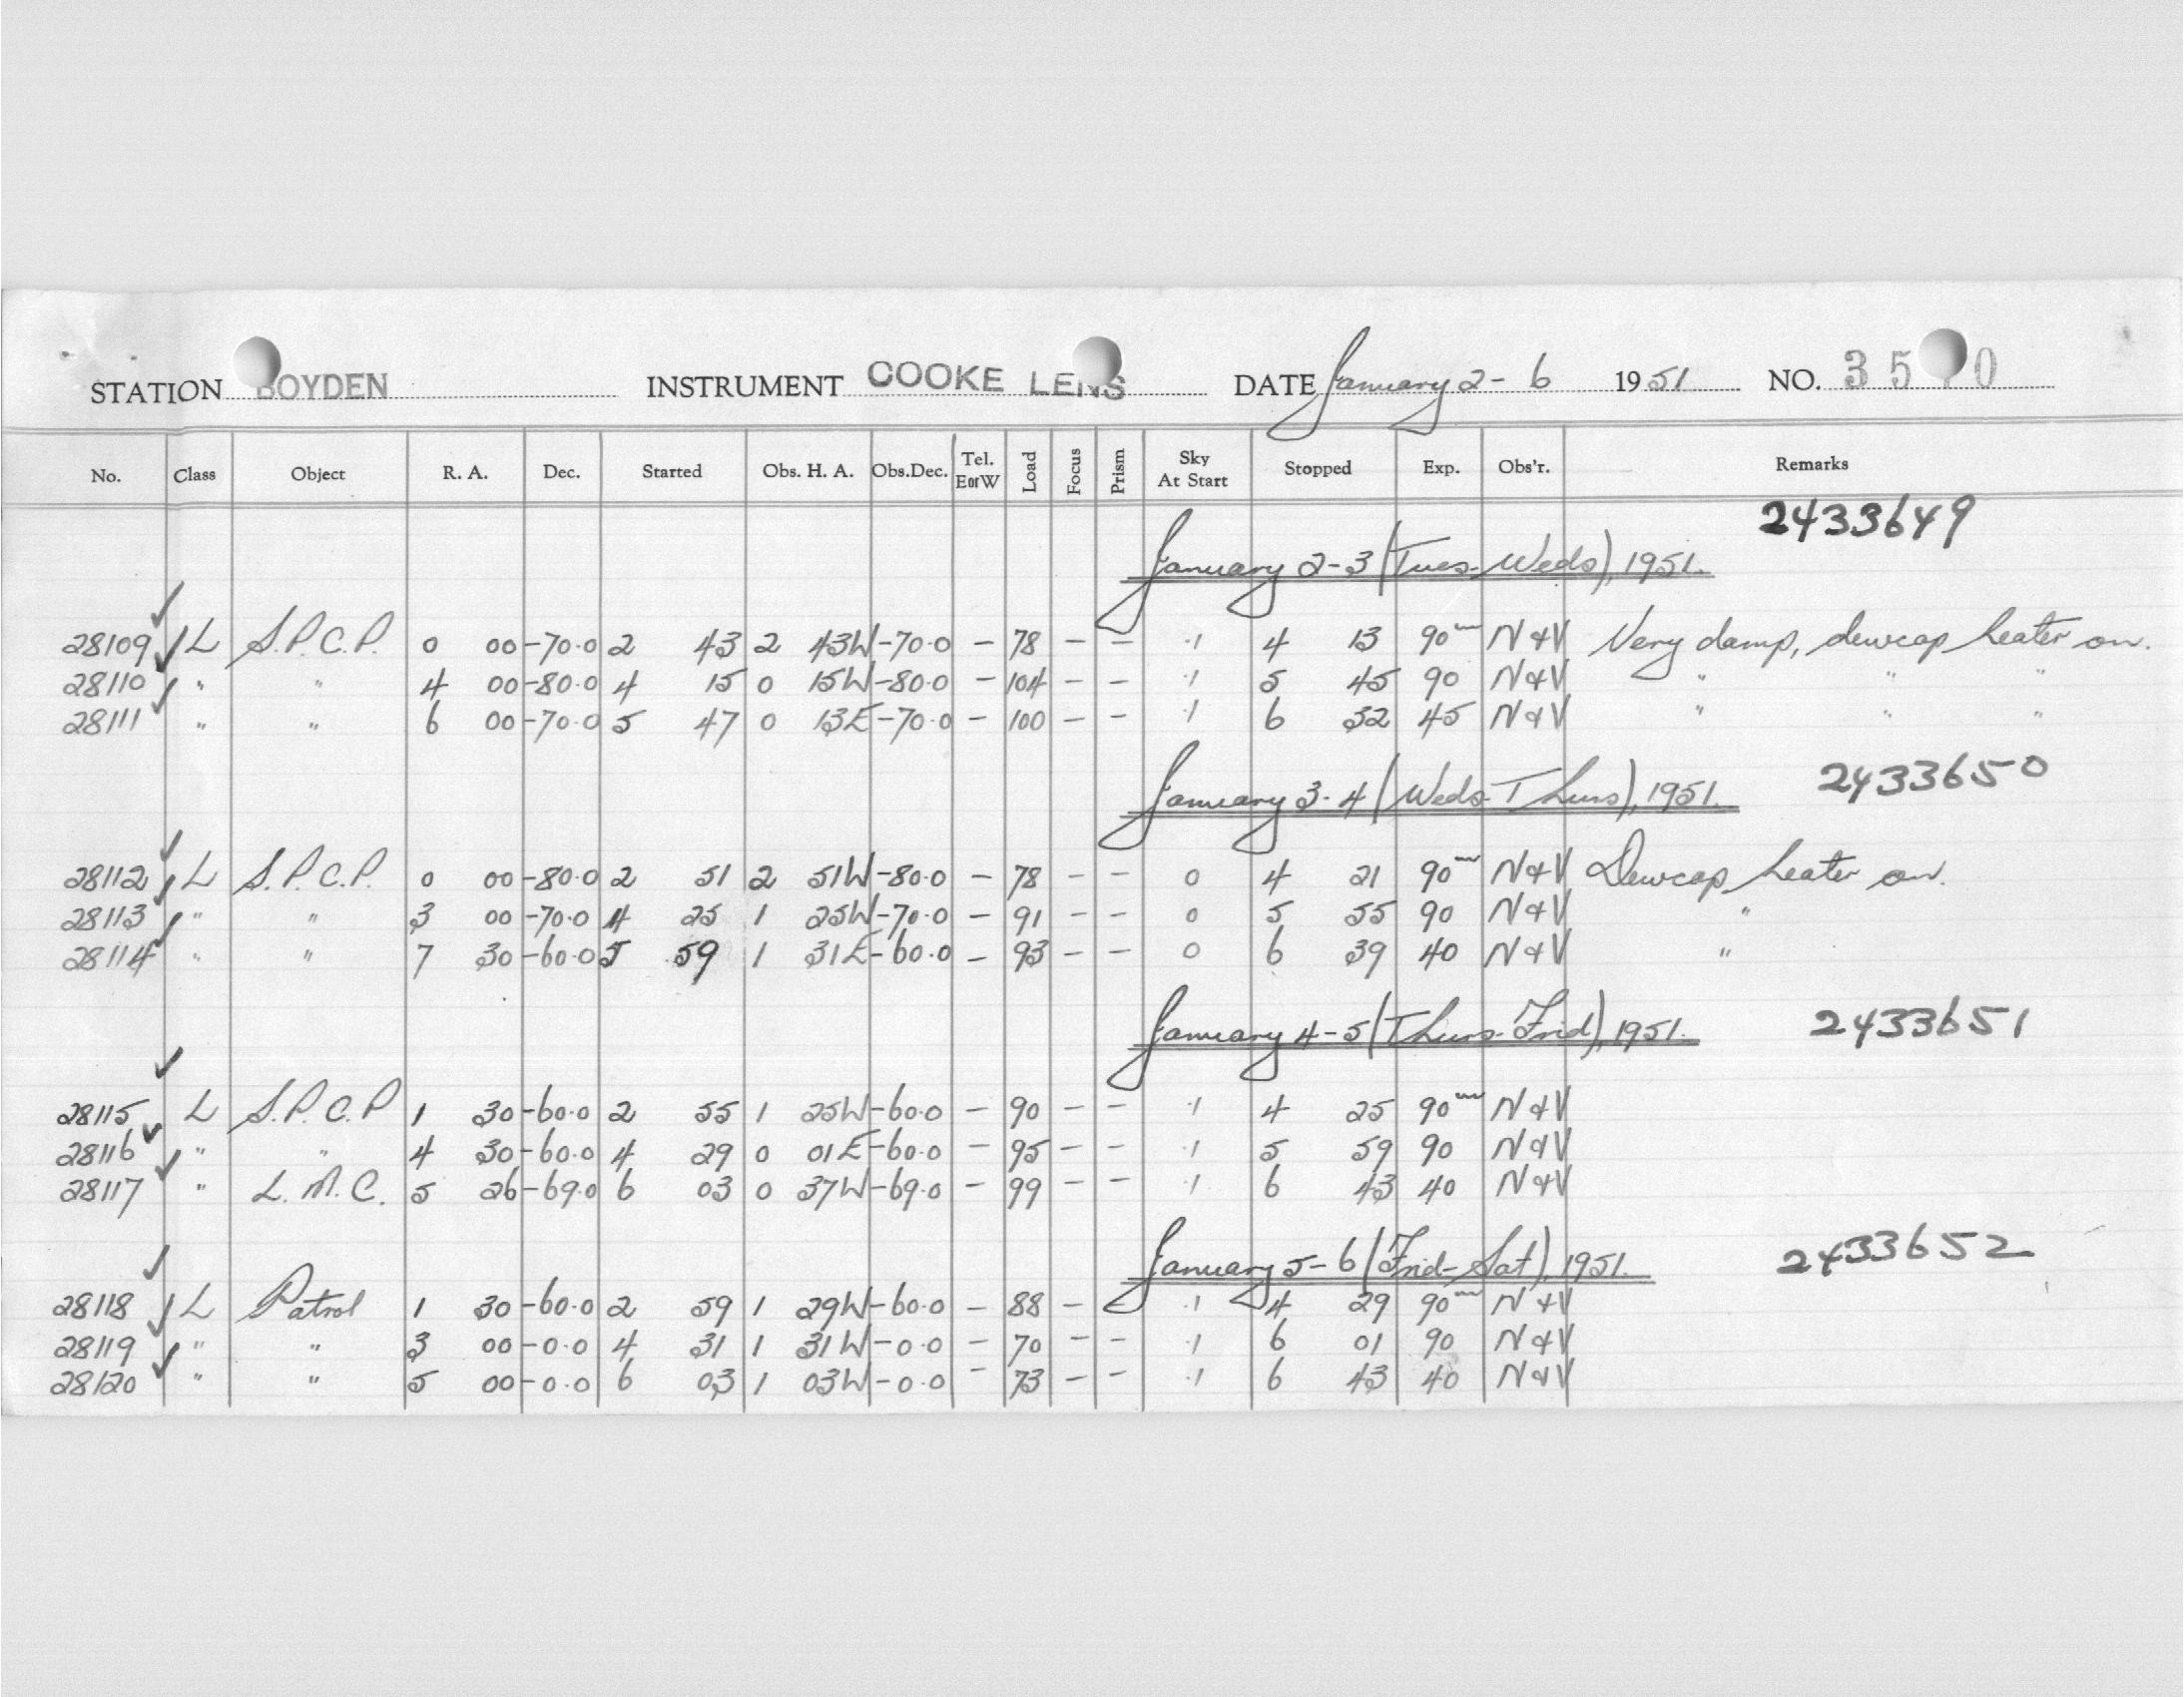 STATION BOYDEN INSTRUMENT COOKE LENS DATE January 2-6 1951 NO. 35 0
No. Class Object R. A. Dec. Started Obs. H. A. Obs.Dec. Tel. EorW Load Focus Prism Sky At Start Stopped Exp. Obs'r. Remarks
2433649
January 2-3 (Tues-Weds), 1951.
28109 L S.P.C.P. 0 00 -70.0 2 43 2 43W -70.0 - 78 - - .1 4 13 90m N&V Very damp, dewcap heater on.
28110 " " 4 00 -80.0 4 15 0 15W -80.0 - 104 - - .1 5 45 90 N&V " " "
28111 " " 6 00 -70.0 5 47 0 13E -70.0 - 100 - - .1 6 32 45 N&V " " "
January 3-4 (Weds-Thurs), 1951. 2433650
28112 L S.P.C.P. 0 00 -80.0 2 51 2 51W -80.0 - 78 - - 0 4 21 90m N&V Dewcap heater on.
28113 " " 3 00 -70.0 4 25 1 25W -70.0 - 91 - - 0 5 55 90 N&V "
28114 " " 7 30 -60.0 5 59 1 31E -60.0 - 93 - - 0 6 39 40 N&V "
January 4-5 (Thurs-Frid), 1951. 2433651
28115 L S.P.C.P 1 30 -60.0 2 55 1 25W -60.0 - 90 - - .1 4 25 90m N&V
28116 " " 4 30 -60.0 4 29 0 01E -60.0 - 95 - - .1 5 59 90 N&V
28117 " L.M.C. 5 26 -69.0 6 03 0 37W -69.0 - 99 - - .1 6 43 40 N&V
January 5-6 (Frid-Sat), 1951. 2433652
28118 L Patrol 1 30 -60.0 2 59 1 29W -60.0 - 88 - .1 4 29 90m N&V
28119 " " 3 00 -0.0 4 31 1 31W -0.0 - 70 - - .1 6 01 90 N&V
28120 " " 5 00 -0.0 6 03 1 03W -0.0 - 73 - - .1 6 43 40 N&V